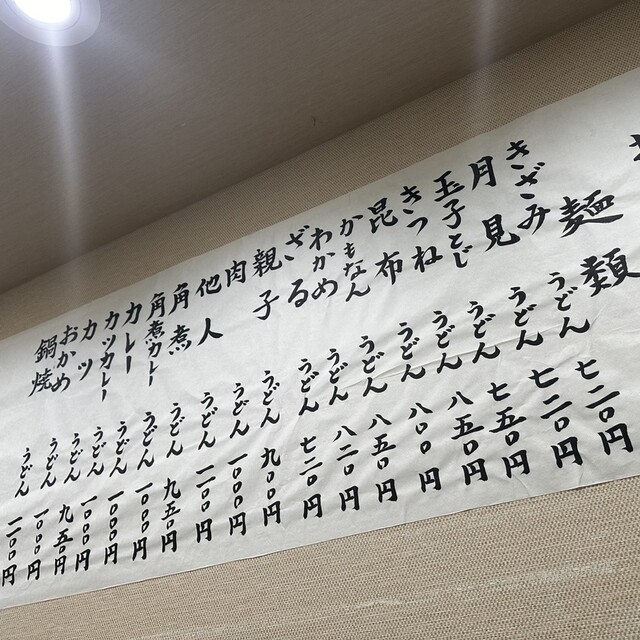 麺類
きざみうどん 七二〇円
月見うどん 七二〇円
玉子とじうどん 七五〇円
きつねうどん 八五〇円
昆布うどん 八〇〇円
かもなんうどん 八五〇円
わかめうどん 八二〇円
ざるうどん 七二〇円
親子うどん 九〇〇円
肉うどん 一〇〇〇円
他人うどん 一一〇〇円
角煮うどん 九五〇円
角煮カレーうどん 一〇〇〇円
カレーうどん 一〇〇〇円
カツカレーうどん 一〇〇〇円
カツうどん 九五〇円
おかめうどん 一〇〇〇円
鍋焼うどん 一二〇〇円